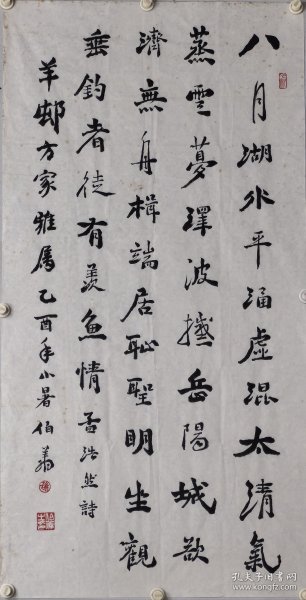 八月湖水平涵虚混太清氣
蒸雲夢澤波撼岳陽城欲
濟無舟楫端居恥聖明坐觀
垂釣者徒有羡魚情孟浩然詩
羊邨方家雅属乙酉年小暑伯翁
孔夫子旧书网